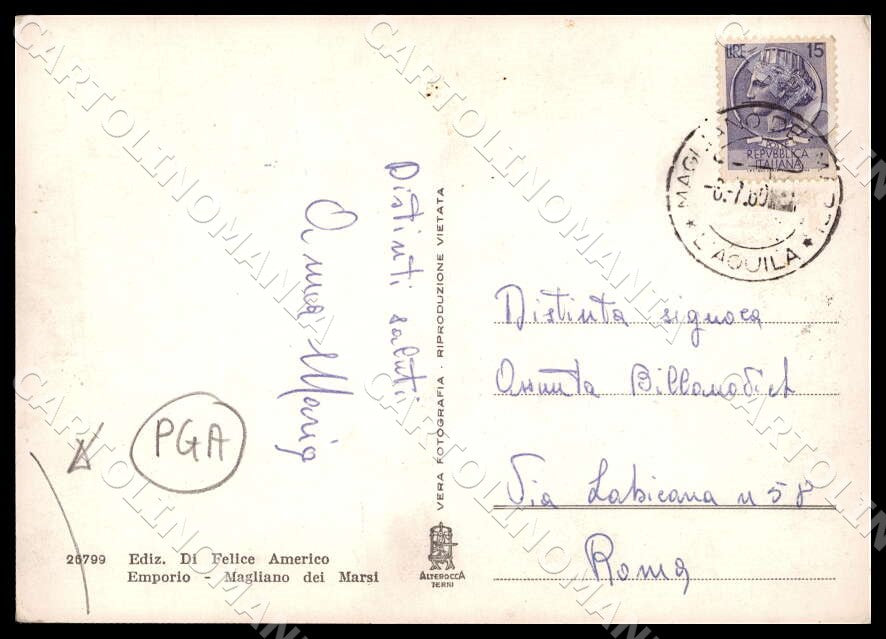 LIRE 15
POSTE
REPVBBLICA
ITALIANA
MAGLIANO DEI MARSI
-6.-7.60
* L'AQUILA *
Distinti saluti
Anna Maria
VERA FOTOGRAFIA - RIPRODUZIONE VIETATA
Distinta signora
Assunta
Via Labicana n 58
Roma
PGA
26799 Ediz. Di Felice Americo
Emporio - Magliano dei Marsi
ALTEROCCA
TERNI
CARTOLINOMANIA